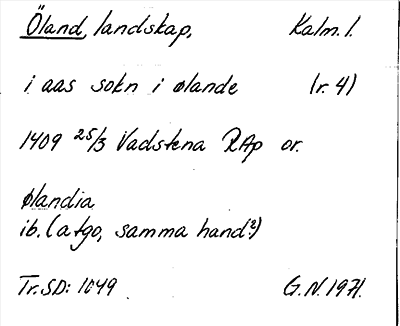 Öland, landskap, Kalm. l.
i aas sokn i ølande (r. 4)
1409 25/3 Vadstena RAp or.
ølandia
ib. (atgo, samma hand?)
Tr. SD: 1049 G.N. 1971.